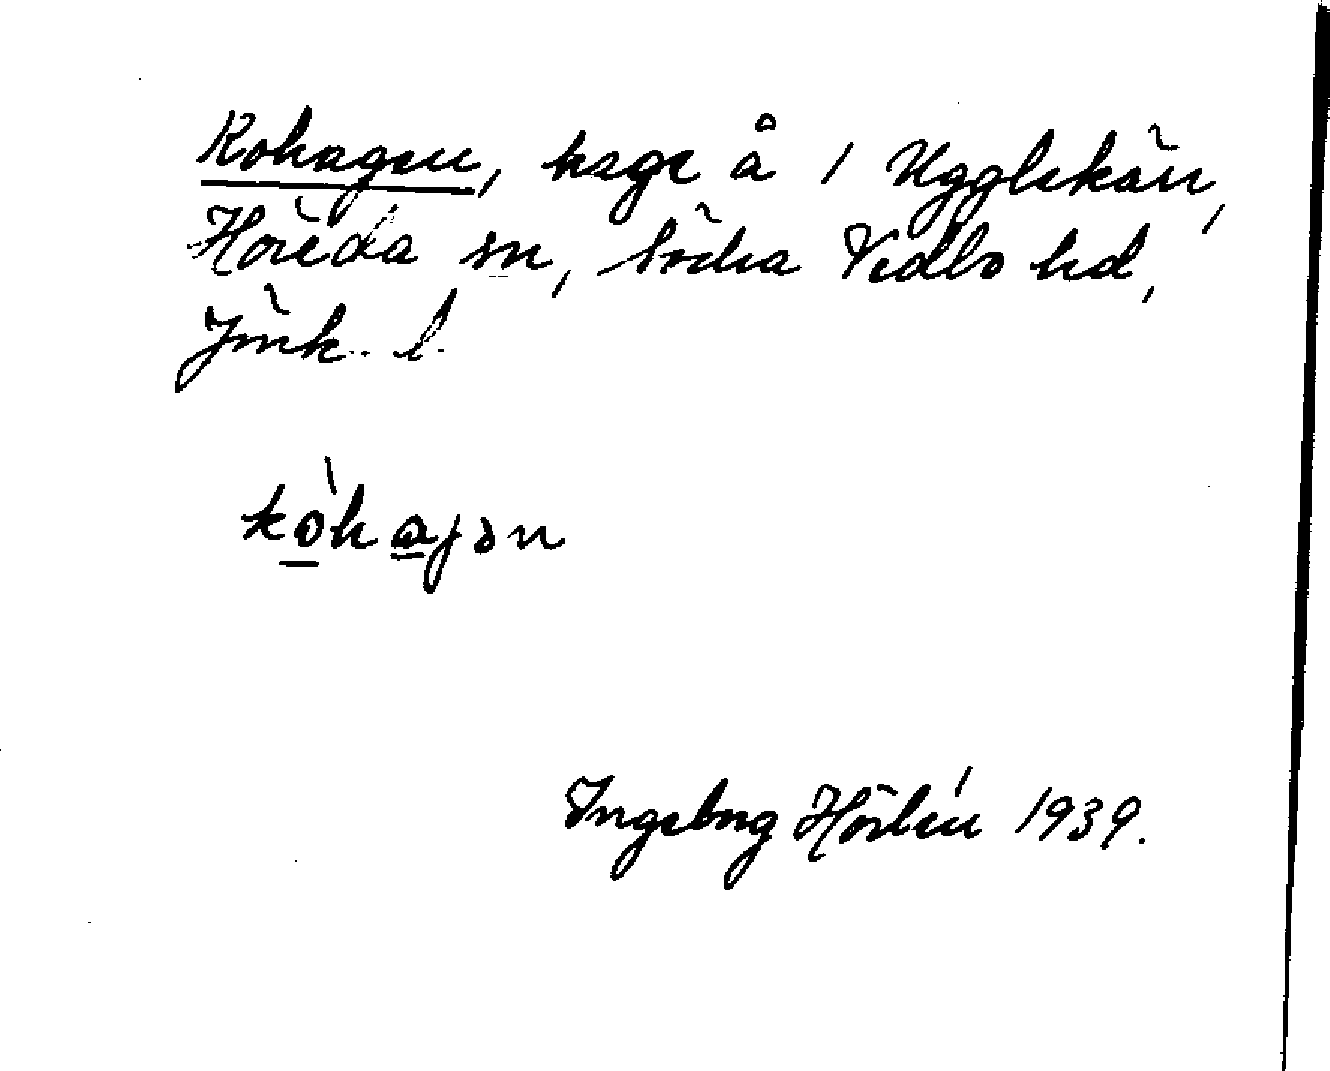 Kohagen, hage å 1 Ugglekärr,
Höreda sn, Södra Vedbo hd,
Jönk. l.
kòhagən
Ingeborg Hörlén 1939.